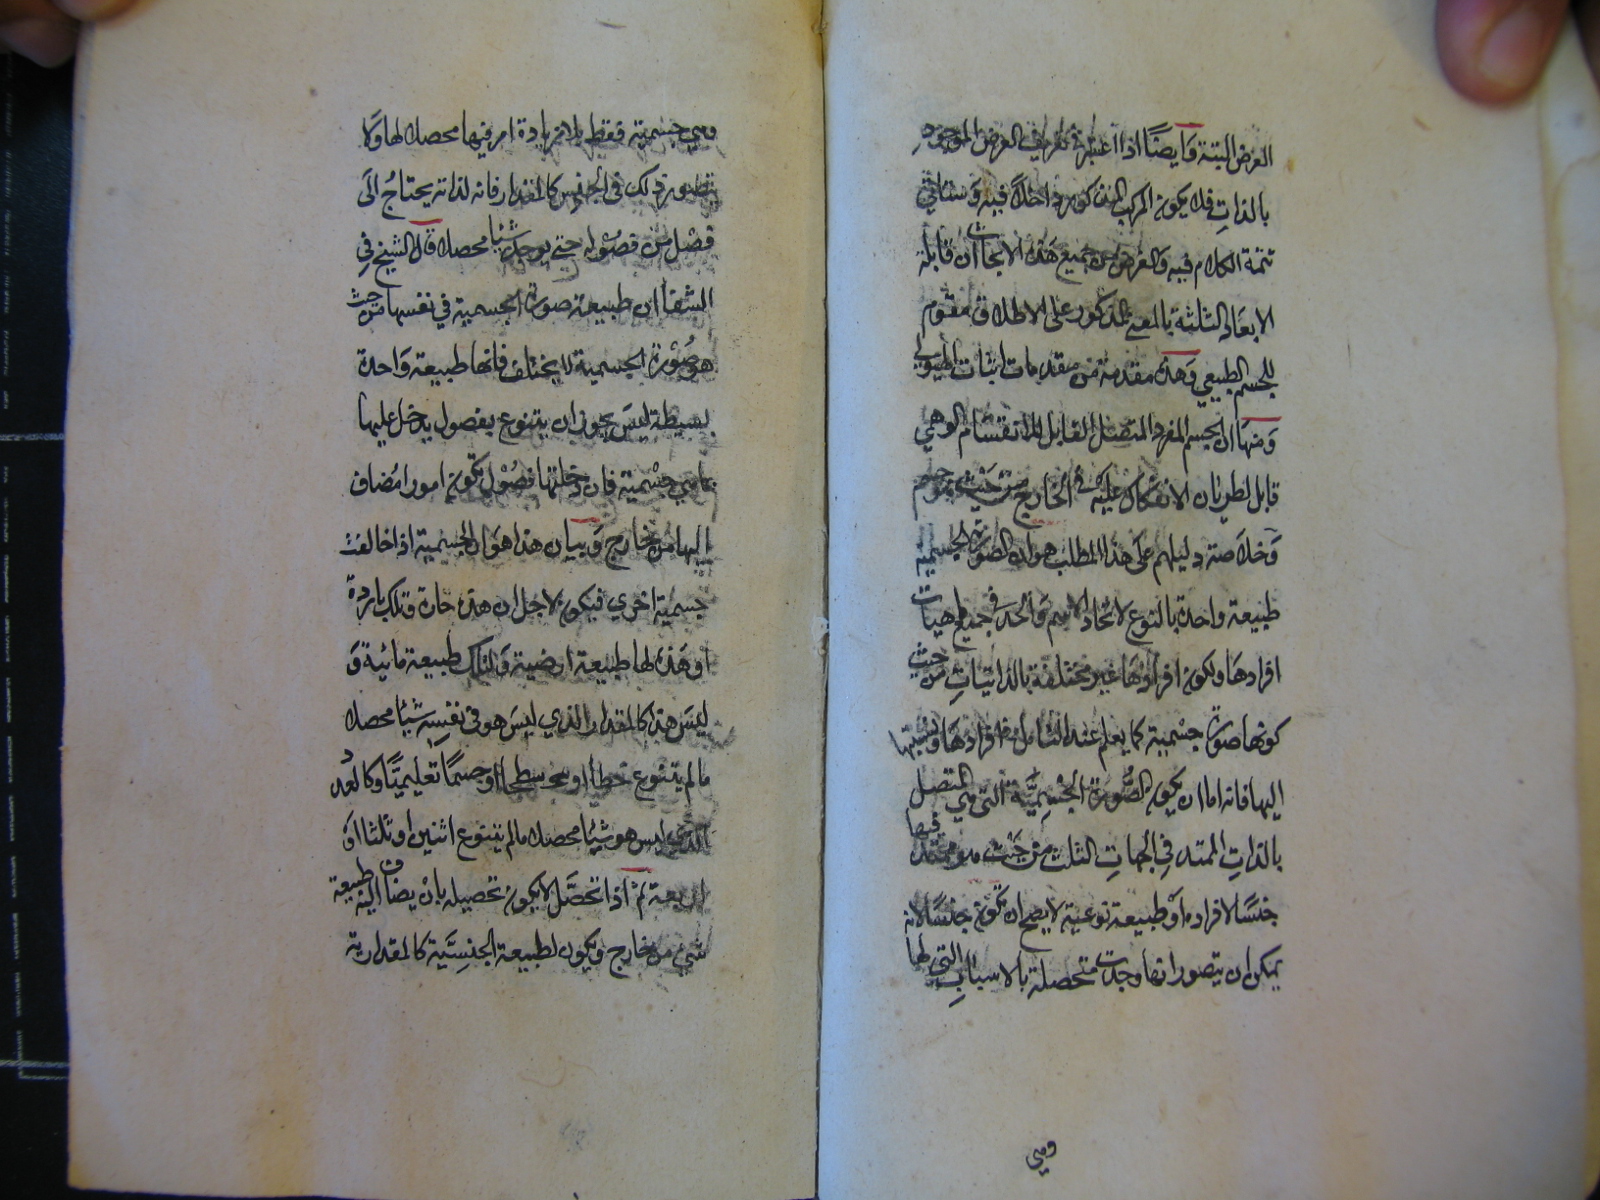 العرض البتة وَأيضًا اذا اعتبر في تعريف العرض الموجود
بالذاتِ فلا يكون المركب المذكور داخلاً فيه وَسَتأتي
تتمة الكلام فيه وَالغرض من جميع هَذه الابحاث ان قابلة
الابعَاد الثلثة بالمعنى المذكور على الاطلاق مقوم
للجسم الطبيعي وَهذه مقدمة من مقدمات اثبات الهيولى
وَمنهَا ان الجسم المفرد المتصل القابل للانقسَام الوهمي
قابل لطريان الانفكاك عليه في الخارج من حَيث هو جسم
وَخلاَصة دليلهم عَلى هذا المطلب هو ان الصورَة الجسمية
طبيعة واحدة بالنوع لاتحاد الاسم وَالحَد في جميع مَاهيات
افرادهَا ولكون افرادهَا غير مختلفة بالذاتيَاتِ من حيث
كونها صورَة جسْمية كما يعلم عند التأمل في افرادهَا وَنسبتها
اليها فانه اما ان يكون الصُّورَة الجسْمِيَّة التى هي المتصل
بالذاتِ الممتد في الجهاتِ الثلث من حَيْث هو ممتد فيها
جنسًا لافراده اَوْ طبيعة نوعية لا يصح ان تكون جنسًا لانه
يمكن ان يتصور انها وجدَت متحصلة بالاسبَابِ التى لها
وهي
وهي جسْمية فقط بلا زيادة امر فيها محصل لها وَلا
يتصور ذلك في الجنس كالمقدار فانه لذاته يحتاجُ الَى
فصْل من فصُوله حتى يوجد شيئا محصلا قال الشيخ في
الشفا ان طبيعة صورة الجسمية في نفسها من حيث
هو صُوْرَة الجسمية لا يختلف فانها طبيعة وَاحدة
بسيطة ليسَ يجوز ان يتنوع بفصول يدخل عليها
بما هي جسْمية فان دخلتها فصُوْل تكون امورا مُضاف
اليها من خارج وَبيان هذا هوَ ان الجسمية اذا خالفت
جسمية اخرى فيكون لاجل ان هذه حارة وتلك باردة
او هَذه لها طبيعة ارضية وَلتلك طبيعة مائية وَ
ليسَ هذا كالمقدار الذي ليسَ هو في نفسِه شيئا محصلا
ما لم يتنوع خطا او سطحا اَو جسمًا تعليميًّا وكالعدد
الذى ليس هو شيئا محصلا ما لم يتنوع اثنين او ثلثا اَوْ
اربعة ثم اذا تحصَّل لا يكون تحصيله بانْ يضاف اليه طبيعة
شئ من خارج وَيكون لطبيعة الجنسِيَّة كالمقدارية